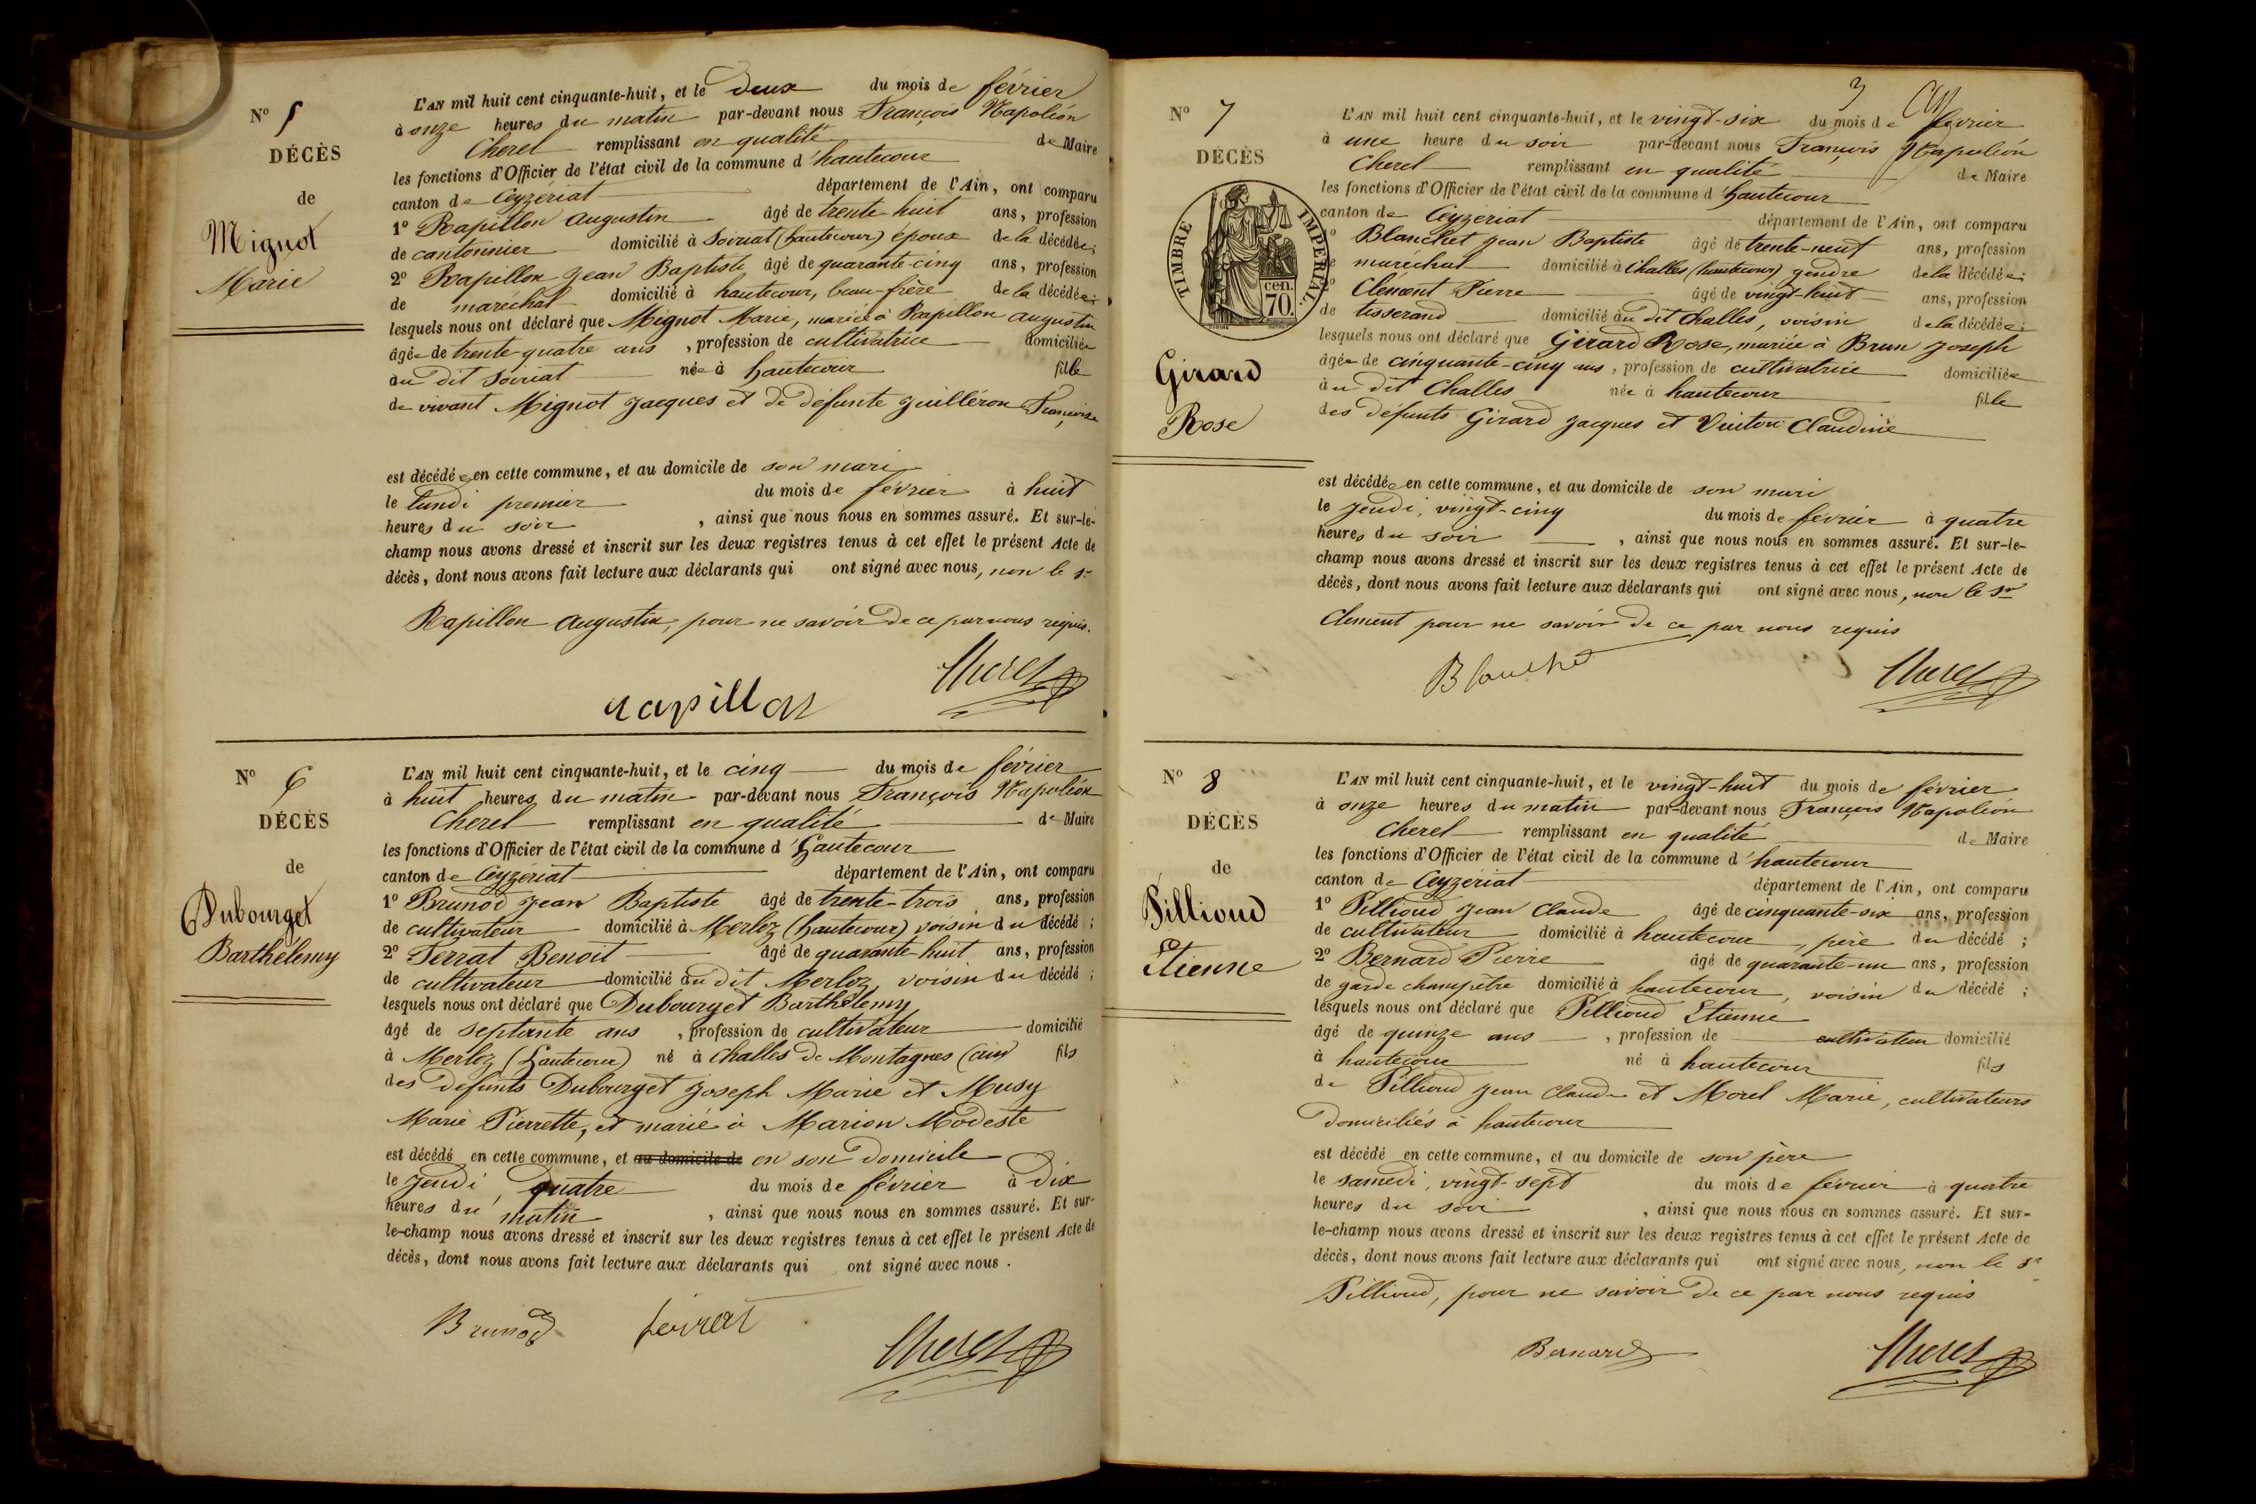 N° 5
DÉCÈS
de
Mignot
Marie
L'AN mil huit cent cinquante-huit, et le deux du mois de février
à onze heures du matin par-devant nous François Napoléon
Cherel remplissant en qualité de Maire
les fonctions d'Officier de l'état civil de la commune d'hautecour
canton de Ceyzériat département de l'Ain, ont comparu
1° Rapillon Augustin âgé de trente-huit ans, profession
de cantonnier domicilié à Soiriat (hautecour) époux de la décédée;
2° Rapillon Jean Baptiste âgé de quarante-cinq ans, profession
de maréchal domicilié à hautecour, beau-frère de la décédée;
lesquels nous ont déclaré que Mignot Marie, mariée à Rapillon Augustin
âgée de trente-quatre ans, profession de cultivatrice domiciliée
au dit Soiriat née à hautecour fille
de vivant Mignot Jacques et de défunte Juilléron Françoise
est décédée en cette commune, et au domicile de son mari
le lundi premier du mois de février à huit
heures du soir, ainsi que nous nous en sommes assuré. Et sur-le-
champ nous avons dressé et inscrit sur les deux registres tenus à cet effet le présent Acte de
décès, dont nous avons fait lecture aux déclarants qui ont signé avec nous, non le Sr
Rapillon Augustin, pour ne savoir de ce par nous requis.
rapillon Cherel
N° 6
DÉCÈS
de
Dubourget
Barthélemy
L'AN mil huit cent cinquante-huit, et le cinq du mois de février
à huit heures du matin par-devant nous François Napoléon
Cherel remplissant en qualité de Maire
les fonctions d'Officier de l'état civil de la commune d'hautecour
canton de Ceyzériat département de l'Ain, ont comparu
1° Brunod Jean Baptiste âgé de trente-trois ans, profession
de cultivateur domicilié à Merloz (hautecour) voisin du décédé;
2° Ferrat Benoit âgé de quarante-huit ans, profession
de cultivateur domicilié au dit Merloz voisin du décédé;
lesquels nous ont déclaré que Dubourget Barthélemy
âgé de septante ans, profession de cultivateur domicilié
à Merloz (hautecour) né à Challes de Montagnes (ain) fils
des défunts Dubourget Joseph Marie et Musy
Marie Pierrette, et marié à Marion Modeste
est décédé en cette commune, et au domicile de en son domicile
le jeudi, quatre du mois de février à dix
heures du matin, ainsi que nous nous en sommes assuré. Et sur-
le-champ nous avons dressé et inscrit sur les deux registres tenus à cet effet le présent Acte de
décès, dont nous avons fait lecture aux déclarants qui ont signé avec nous.
Brunod ferrat Cherel
3
N° 7
DÉCÈS
TIMBRE IMPÉRIAL.
cen.
70.
Girard
Rose
L'AN mil huit cent cinquante-huit, et le vingt-six du mois de février
à une heure du soir par-devant nous François Napoléon
Cherel remplissant en qualité de Maire
les fonctions d'Officier de l'état civil de la commune d'hautecour
canton de Ceyzériat département de l'Ain, ont comparu
Blanchet Jean Baptiste âgé de trente-neuf ans, profession
maréchal domicilié à Challes (hautecour) gendre de la décédée;
Clément Pierre âgé de vingt-huit ans, profession
de tisserand domicilié au dit Challes, voisin de la décédée;
lesquels nous ont déclaré que Girard Rose, mariée à Brun Joseph
âgée de cinquante-cinq ans, profession de cultivatrice domiciliée
au dit Challes née à hautecour fille
des défunts Girard Jacques et Claudine
est décédée en cette commune, et au domicile de son mari
le jeudi, vingt-cinq du mois de février à quatre
heures du soir, ainsi que nous nous en sommes assuré. Et sur-le-
champ nous avons dressé et inscrit sur les deux registres tenus à cet effet le présent Acte de
décès, dont nous avons fait lecture aux déclarants qui ont signé avec nous, non le Sr
Clément pour ne savoir de ce par nous requis
Blanchet Cherel
N° 8
DÉCÈS
de
Pillioud
Étienne
L'AN mil huit cent cinquante-huit, et le vingt-huit du mois de février
à onze heures du matin par-devant nous François Napoléon
Cherel remplissant en qualité de Maire
les fonctions d'Officier de l'état civil de la commune d'hautecour
canton de Ceyzériat département de l'Ain, ont comparu
1° Pillioud Jean Claude âgé de cinquante-six ans, profession
de cultivateur domicilié à hautecour, père du décédé;
2° Bernard Pierre âgé de quarante-un ans, profession
de garde champêtre domicilié à hautecour, voisin du décédé;
lesquels nous ont déclaré que Pillioud Etienne
âgé de quinze ans, profession de cultivateur domicilié
à hautecour né à hautecour fils
de Pillioud Jean Claude et Morel Marie, cultivateurs
domiciliés à hautecour
est décédé en cette commune, et au domicile de son père
le samedi, vingt-sept du mois de février à quatre
heures du soir, ainsi que nous nous en sommes assuré. Et sur-
le-champ nous avons dressé et inscrit sur les deux registres tenus à cet effet le présent Acte de
décès, dont nous avons fait lecture aux déclarants qui ont signé avec nous, non le Sr
Pillioud, pour ne savoir de ce par nous requis
Bernard Cherel